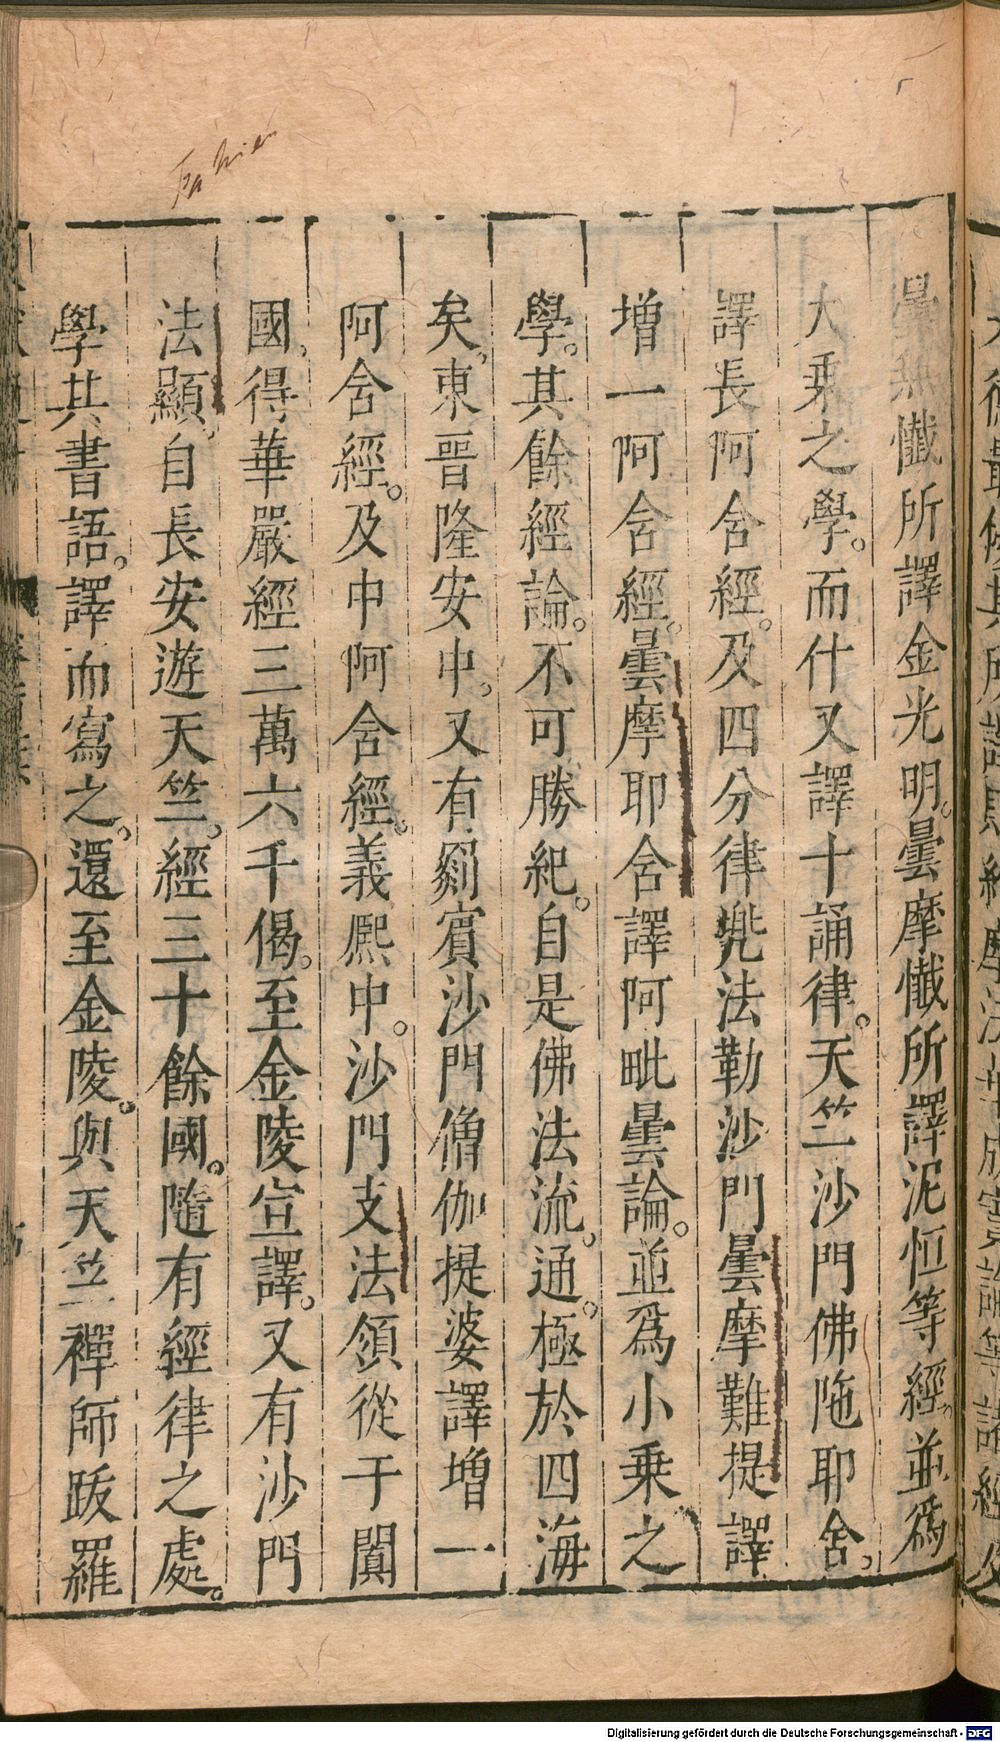 Fa hien
曇無懺所譯金光明。曇摩懺所譯泥恒等經。並爲
大乘之學。而什又譯十誦律。天竺沙門佛陁耶舍。
譯長阿含經。及四分律兠法勒沙門曇摩難提譯
增一阿含經。曇摩耶舍譯阿毗曇論。並爲小乘之
學。其餘經論。不可勝紀。自是佛法流。通。極於四海
矣。東晉隆安中。又有罽賓沙門僧伽提婆譯增一
阿含經。及中阿含經。義熈中。沙門支法領從于闐
國。得華嚴經三萬六千偈。至金陵宣譯。又有沙門
法顯。自長安遊天竺。經三十餘國。隨有經律之處。
學其書語。譯而寫之。還至金陵。與天竺禪師跋羅
Digitalisierung gefördert durch die Deutsche Forschungsgemeinschaft - DFG